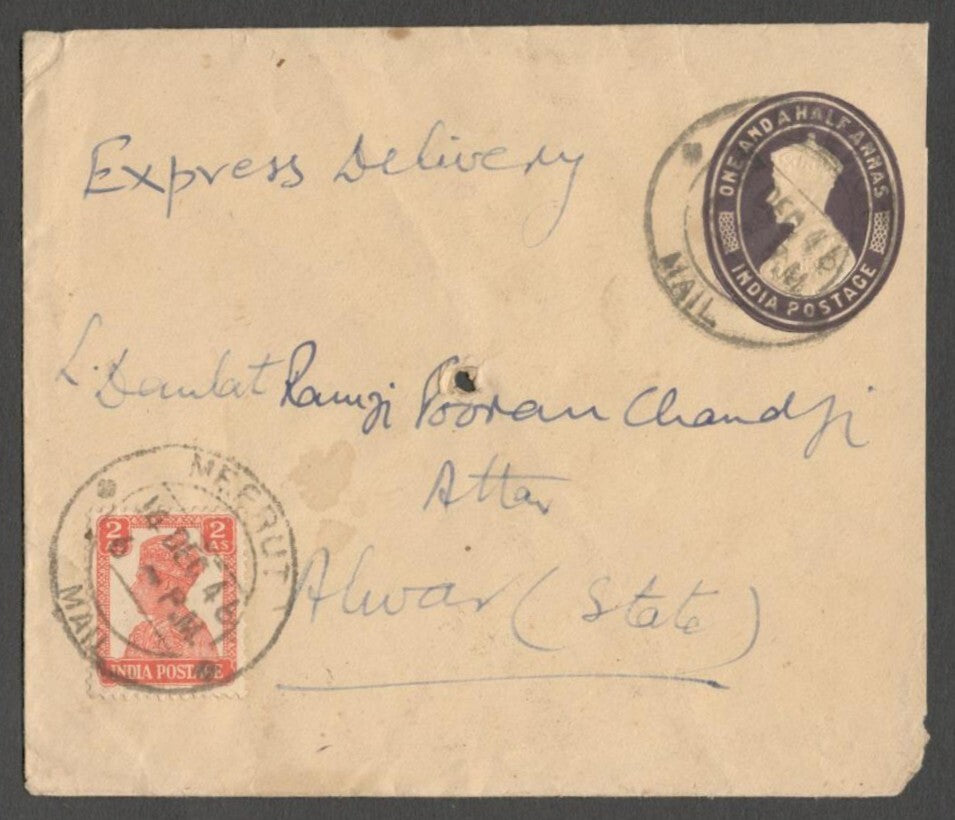 Express Delivery
ONE AND A HALF ANNAS
INDIA POSTAGE
DEC 46
P.M.
MAIL
L. Daulat Ramji Pooran Chandji
Attar
Alwar (State)
MEERUT
DEC 46
P.M.
MAIL
2 AS
2 AS
INDIA POSTAGE